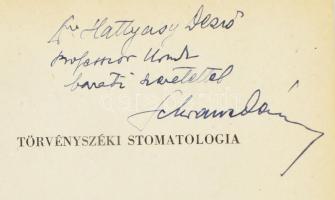 Dr Hattyasy Dezső
Professzor Urnak
baráti szeretettel
Schranz Dénes
TÖRVÉNYSZÉKI STOMATOLOGIA